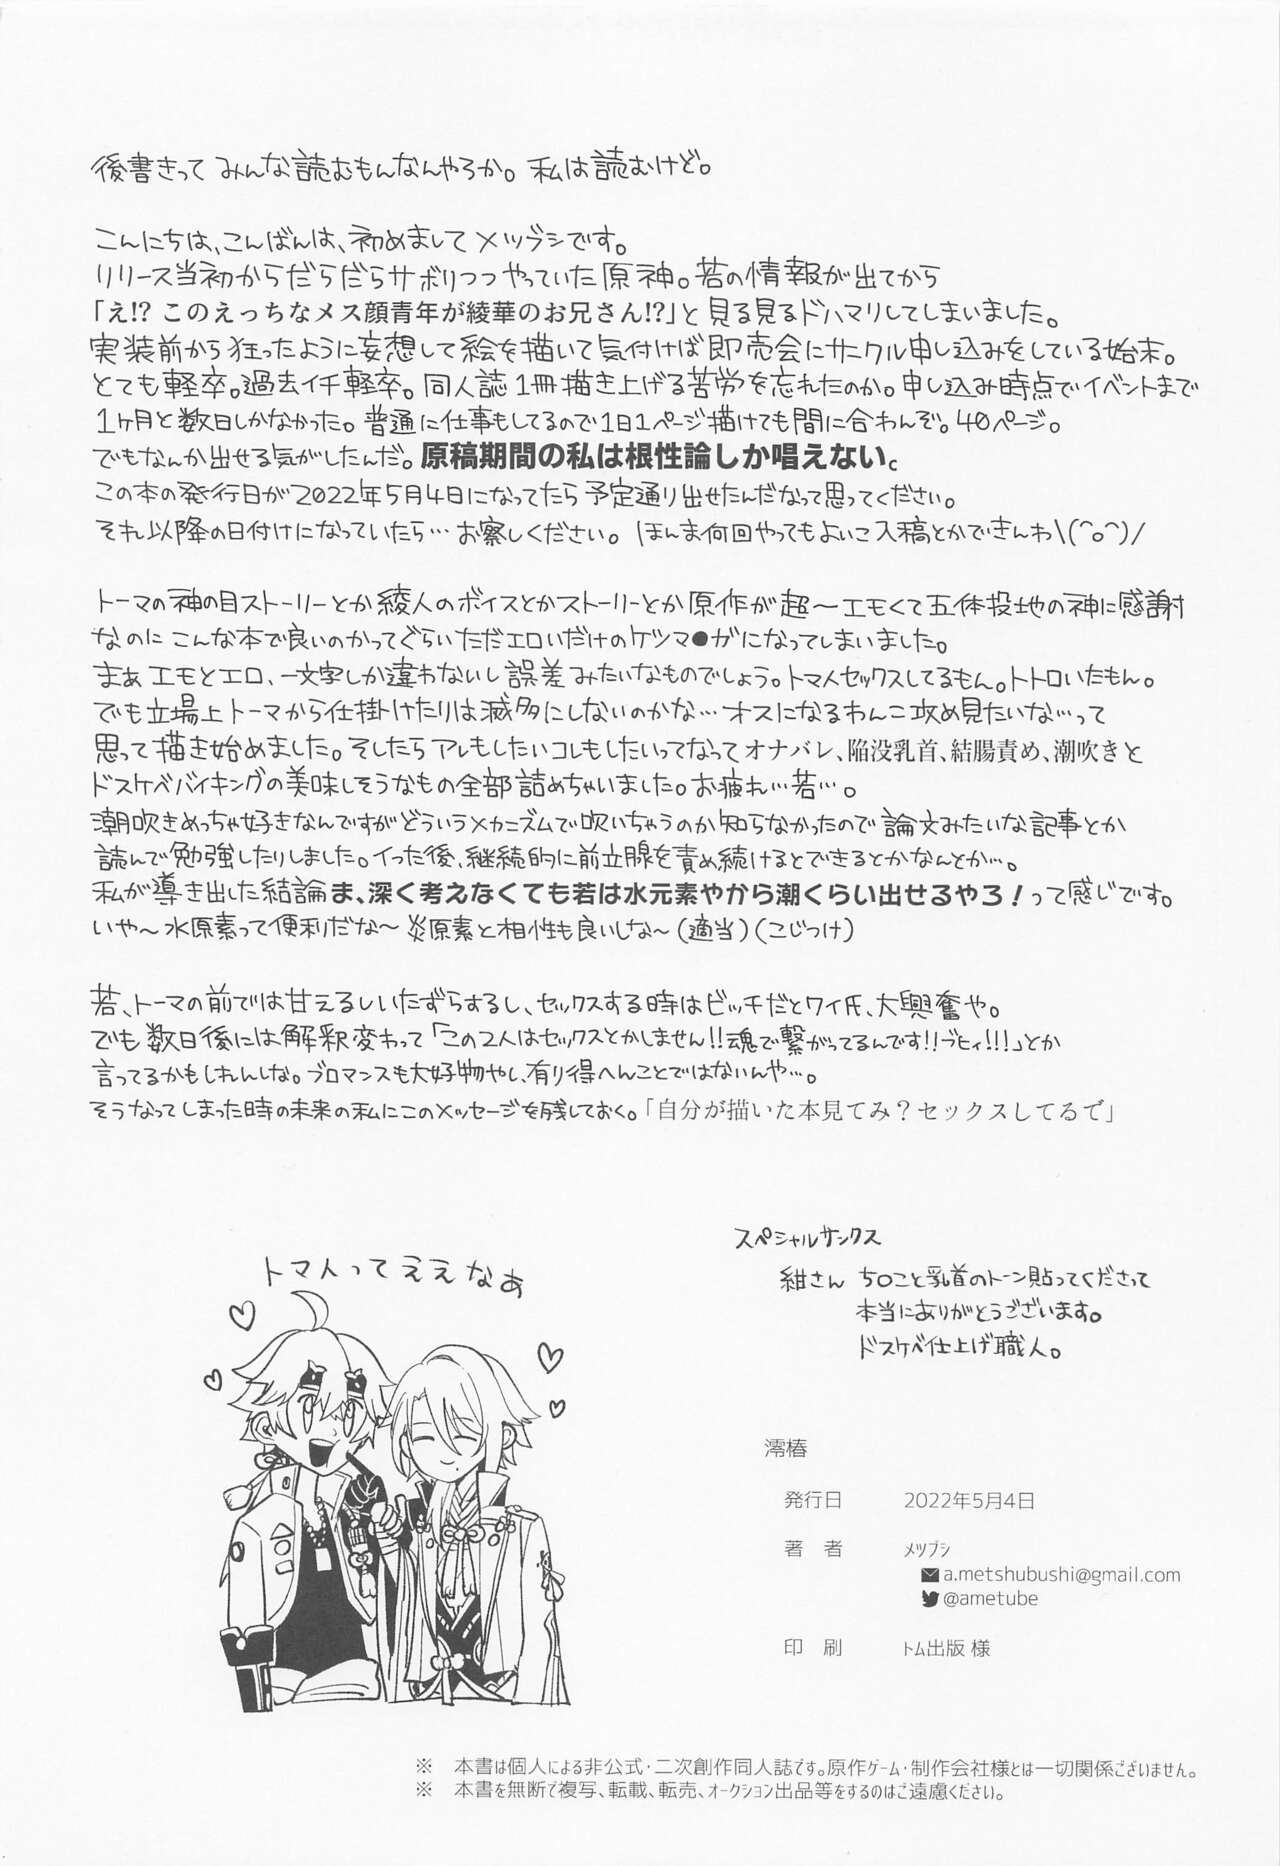 後書きって みんな読むもんなんやろか。私は読むけど。
こんにちは、こんばんは、初めましてメツブシです。
リリース当初からだらだらサボりつつやっていた原神。若の情報が出てから
「え!? このえっちなメス顔青年が綾華のお兄さん!?」と見る見るドハマりしてしまいました。
実装前から狂ったように妄想して絵を描いて気付けば即売会にサークル申し込みをしている始末。
とても軽卒。過去イチ軽卒。同人誌1冊描き上げる苦労を忘れたのか。申し込み時点でイベントまで
1ヶ月と数日しかなかった。普通に仕事もしてるので1日1ページ描けても間に合わんぞ。40ページ。
でもなんか出せる気がしたんだ。原稿期間の私は根性論しか唱えない。
この本の発行日が2022年5月4日になってたら予定通り出せたんだなって思ってください。
それ以降の日付けになっていたら…お察しください。ほんま何回やってもよいこ入稿とかできんわ\(^o^)/
トーマの神の目ストーリーとか綾人のボイスとかストーリーとか原作が超〜エモくて五体投地の神に感謝
なのにこんな本で良いのかってぐらいただエロいだけのケツマ●がになってしまいました。
まぁエモとエロ、一文字しか違わないし誤差みたいなものでしょう。トマ人セックスしてるもん。トトロいたもん。
でも立場上トーマから仕掛けたりは滅多にしないのかな…オスになるわんこ攻め見たいな…って
思って描き始めました。そしたらアレもしたいコレもしたいってなってオナバレ、陥没乳首、結腸責め、潮吹きと
ドスケベバイキングの美味しそうなもの全部詰めちゃいました。お疲れ…若…。
潮吹きめっちゃ好きなんですがどういうメカニズムで吹いちゃうのか知らなかったので論文みたいな記事とか
読んで勉強したりしました。イった後、継続的に前立腺を責め続けるとできるとかなんとか…。
私が導き出した結論ま、深く考えなくても若は水元素やから潮くらい出せるやろ！って感じです。
いや〜水原素って便利だな〜炎原素と相性も良いしな〜(適当)(こじつけ)
若、トーマの前では甘えるしいたずらするし、セックスする時はビッチだとワイ氏、大興奮や。
でも数日後には解釈変わって「この2人はセックスとかしません!!魂で繋がってるんです!!ブヒィ!!!」とか
言ってるかもしれんしな。ブロマンスも大好物やし、有り得へんことではないんや…。
そうなってしまった時の未来の私にこのメッセージを残しておく。「自分が描いた本見てみ？セックスしてるで」
トマ人ってええなぁ
スペシャルサンクス
紺さん ち○こと乳首のトーン貼ってくださって
本当にありがとうございます。
ドスケベ仕上げ職人。
澪椿
発行日 2022年5月4日
著 者 メツブシ
a.metshubushi@gmail.com
@ametube
印 刷 トム出版 様
※ 本書は個人による非公式・二次創作同人誌です。原作ゲーム・制作会社様とは一切関係ございません。
※ 本書を無断で複写、転載、転売、オークション出品等をするのはご遠慮ください。